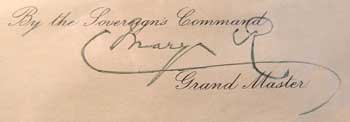 By the Sovereign's Command
Mary R
Grand Master